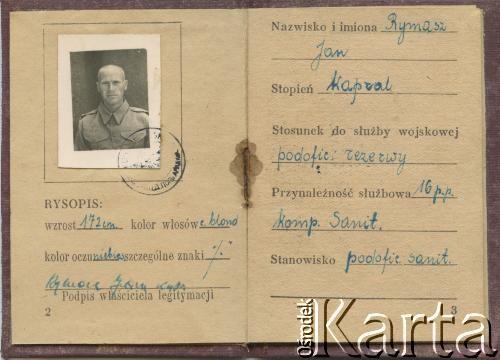 RYSOPIS:
wzrost 172 cm. kolor włosów c. blond
kolor oczu niebies szczególne znaki ·/.
Rymasz Jan kapr.
Podpis właściciela legitymacji
2
Nazwisko i imiona Rymasz
Jan
Stopień Kapral
Stosunek do służby wojskowej
podofic. rezerwy
Przynależność służbowa 16 p.p.
komp. Sanit.
Stanowisko podofic. sanit.
3
Ośrodek
Karta